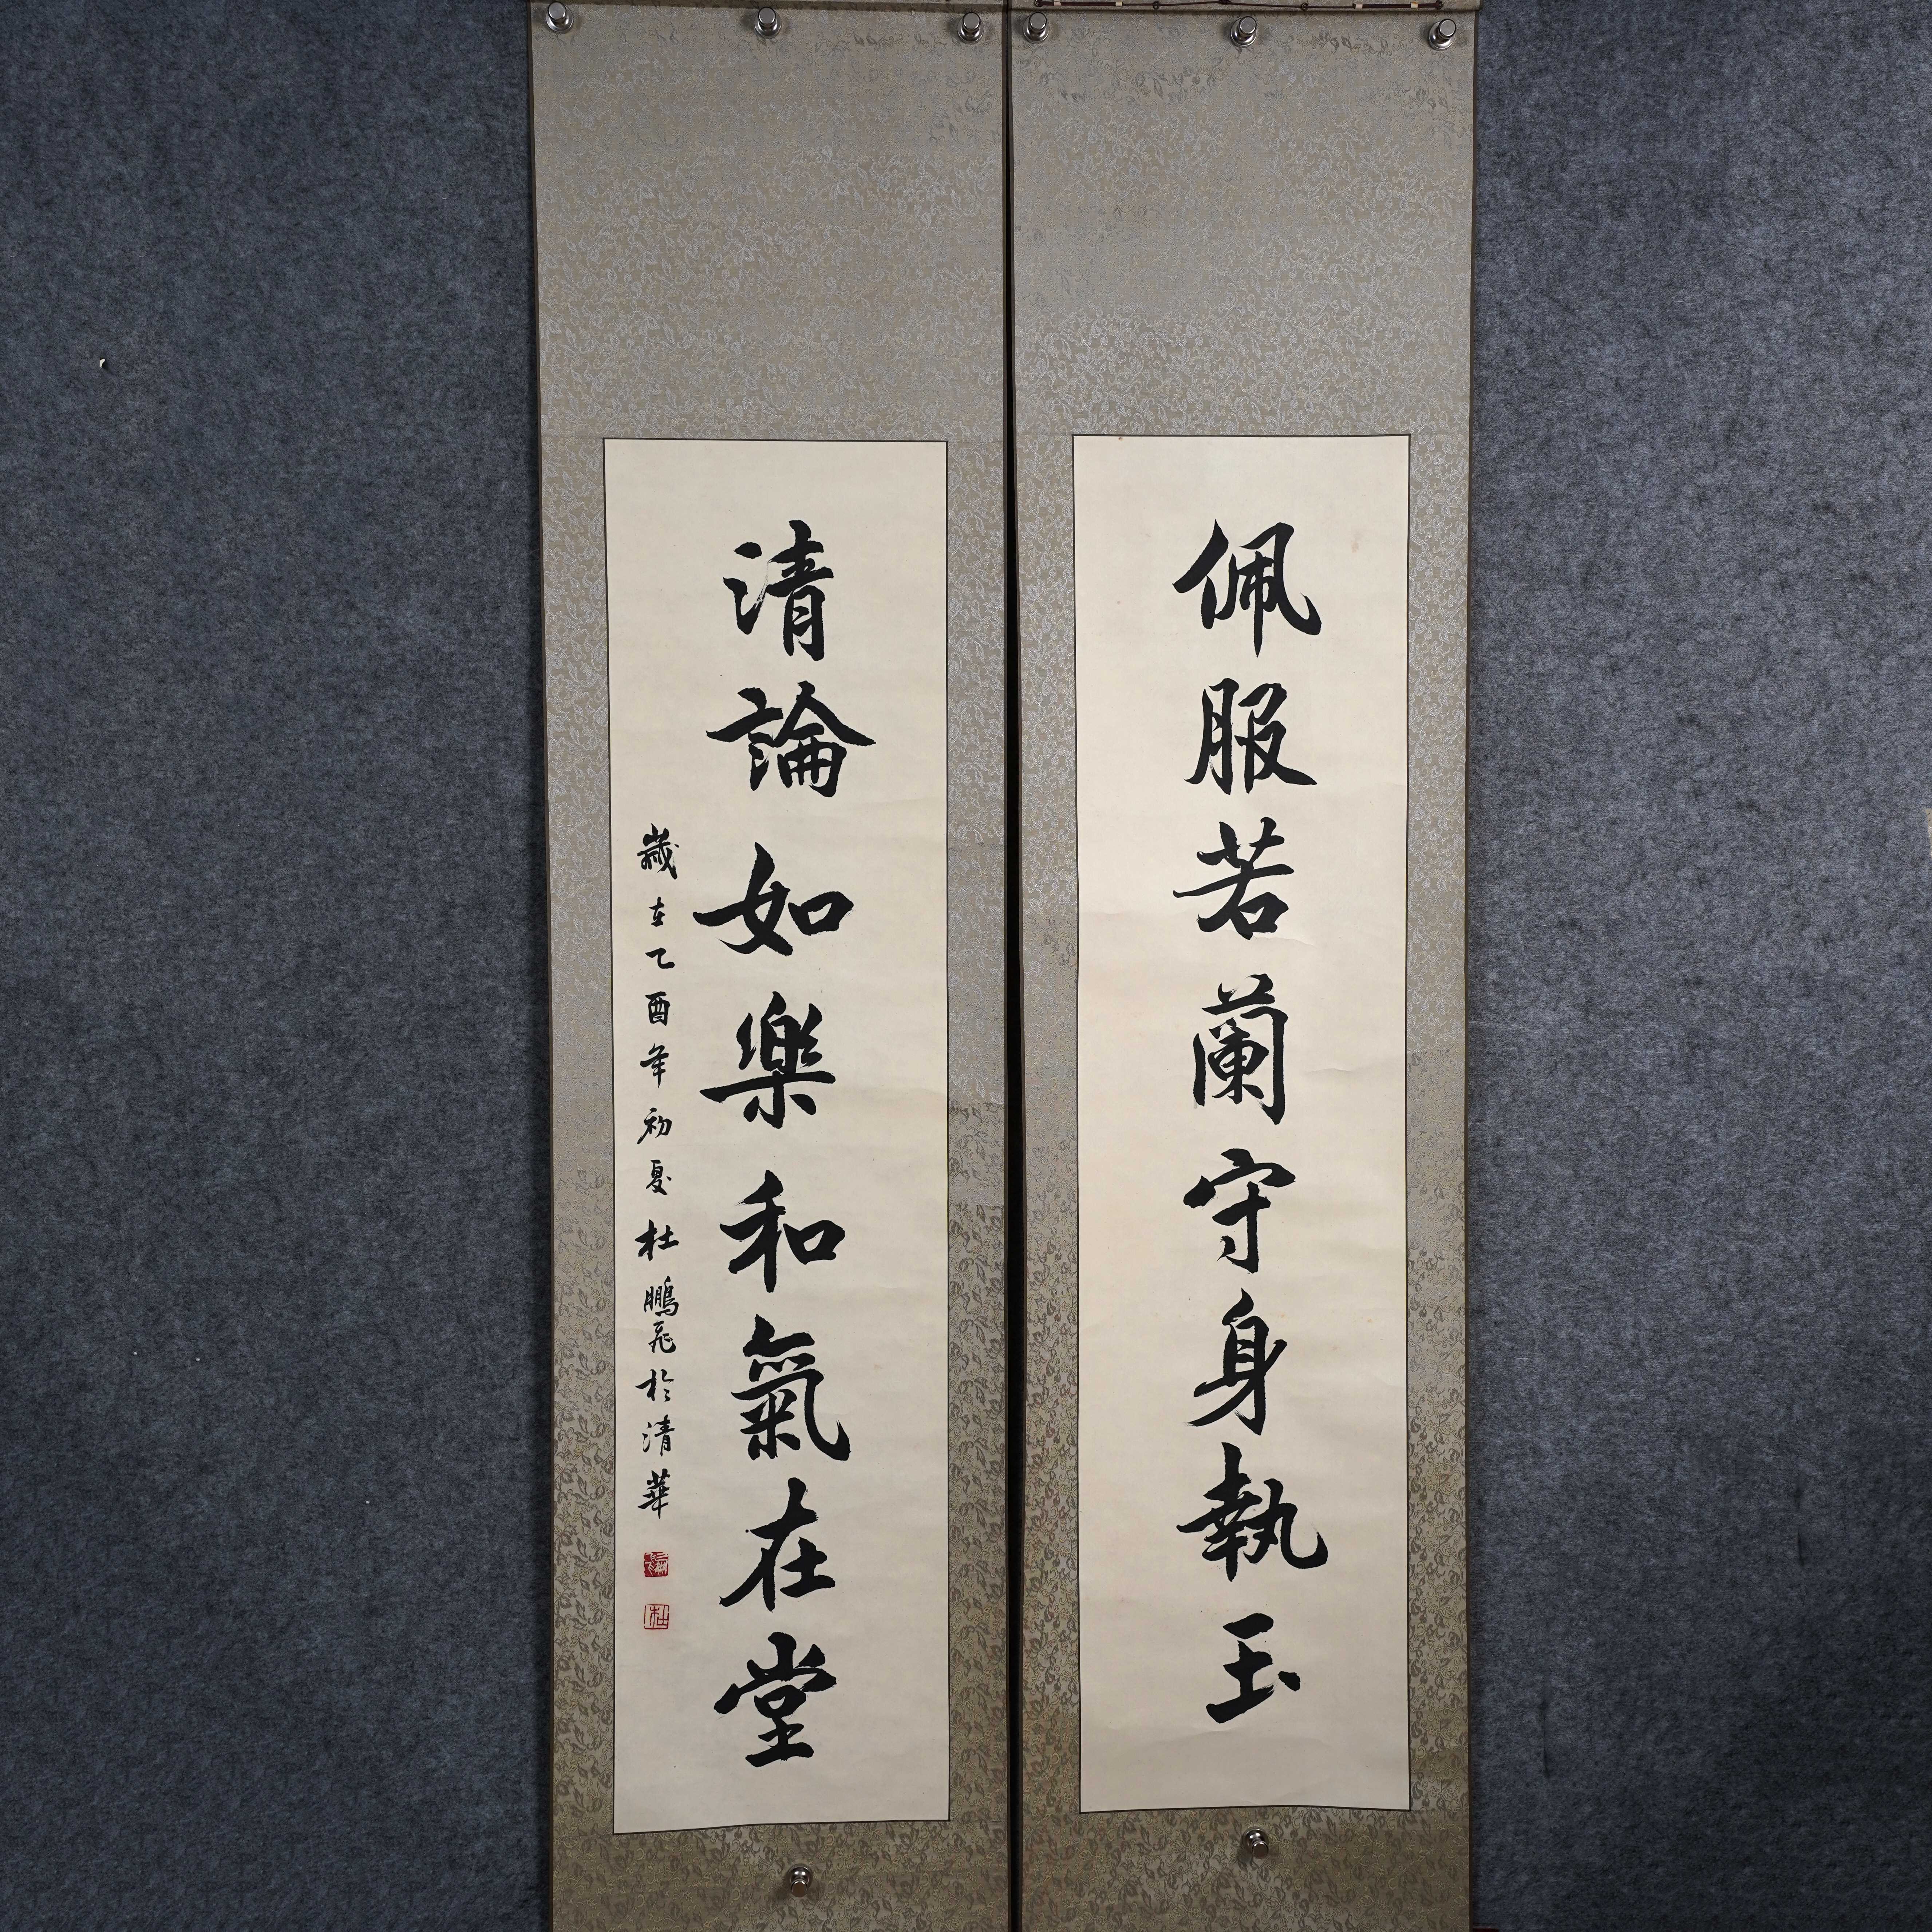 佩服若蘭守身執玉
清論如樂和氣在堂
歲在乙酉年初夏杜鵬飛於清華
杜